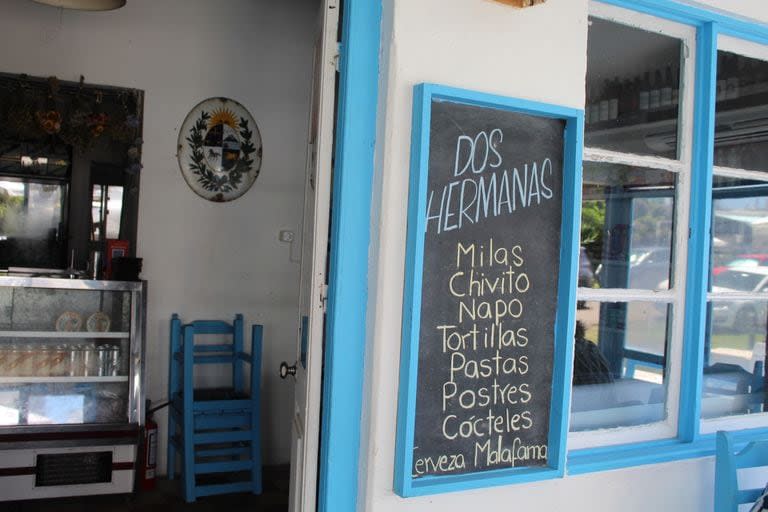 DOS
HERMANAS
Milas
Chivito
Napo
Tortillas
Pastas
Postres
Cócteles
Cerveza Malafama